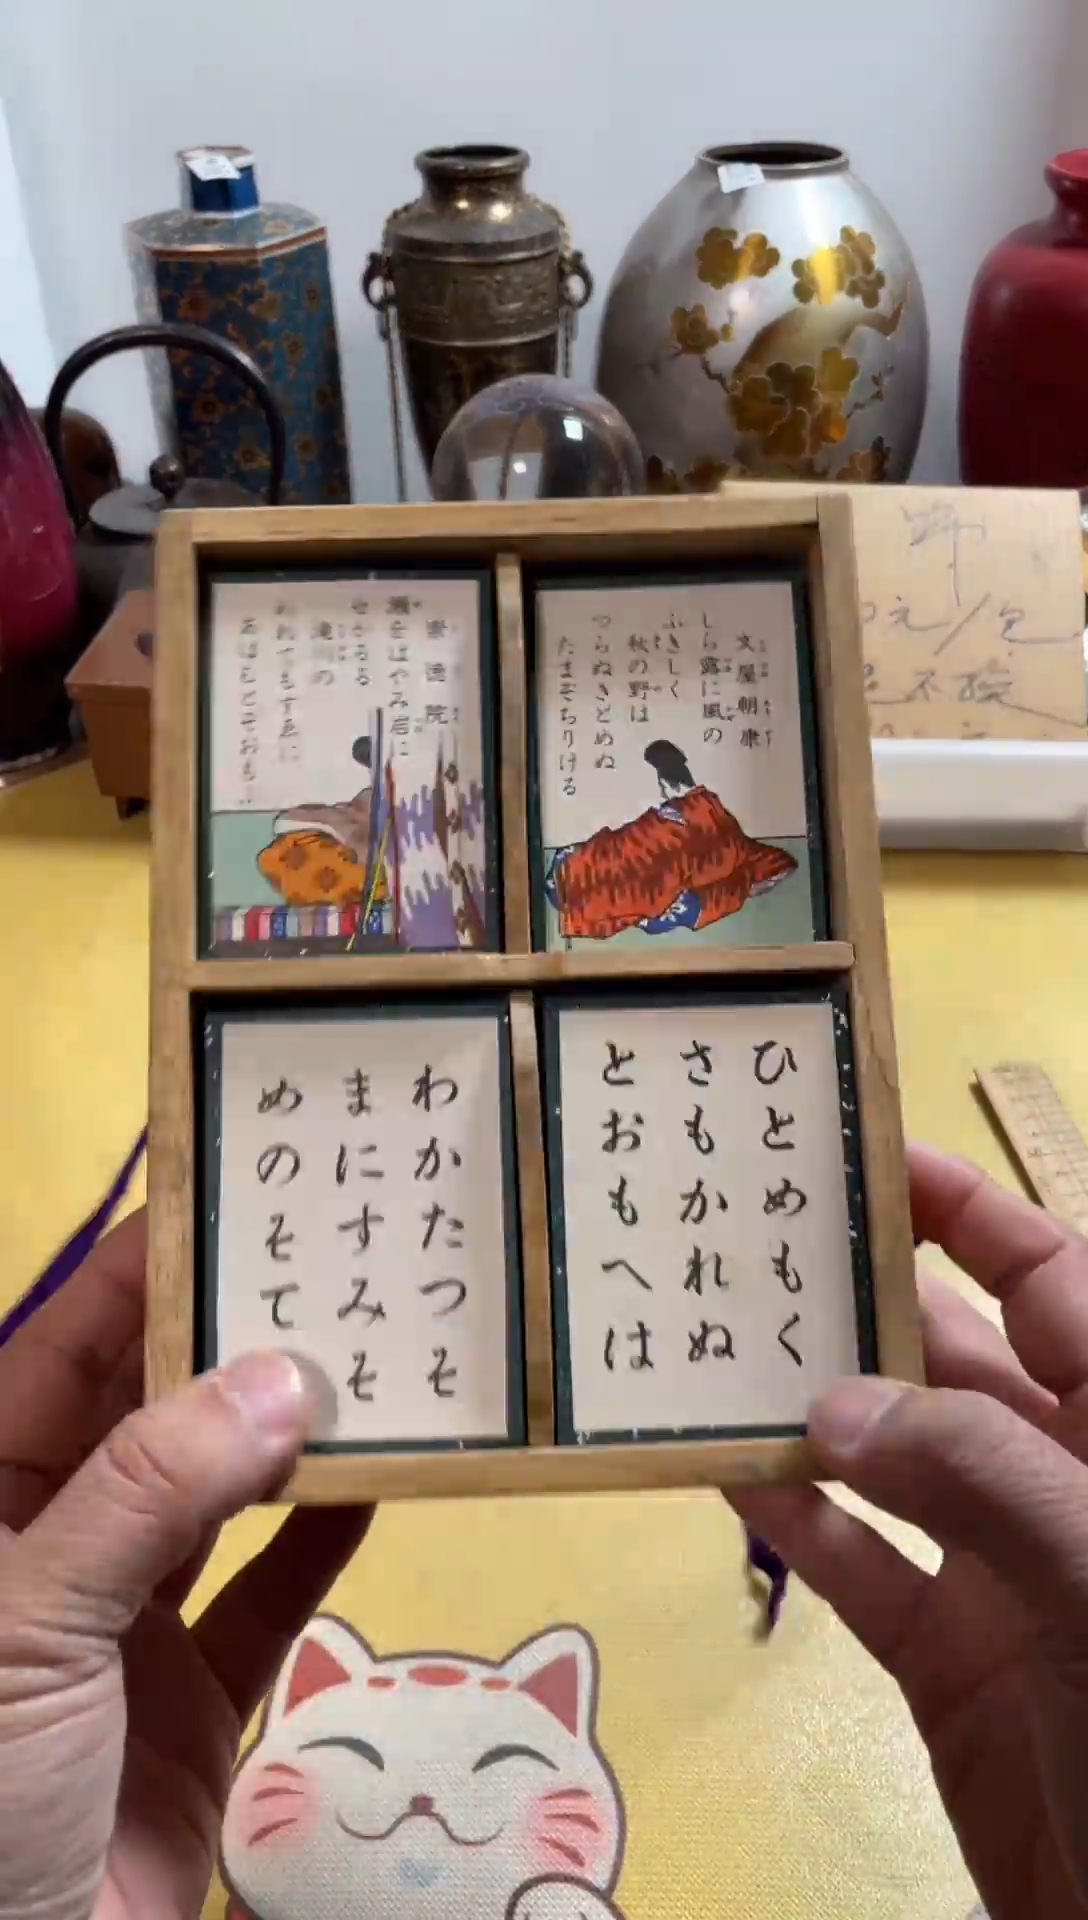 崇徳院
瀬をはやみ岩に
せかるる
滝川の
われてもすゑに
文屋朝康
しら露に風の
ふきしく
秋の野は
つらぬきとめぬ
たまぞちりける
わかたつそ
まにすみそ
めのそて
ひとめもく
さもかれぬ
とおもへは
元/包
不